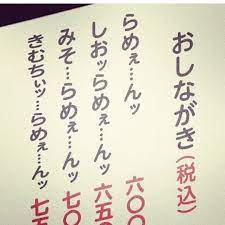 おしながき(税込)
らめぇ…んッ 六〇〇
しおッらめぇ…んッ 六五〇
みそ…らめぇ…んッ 七〇
きむちぃッ…らめぇ…んッ 七